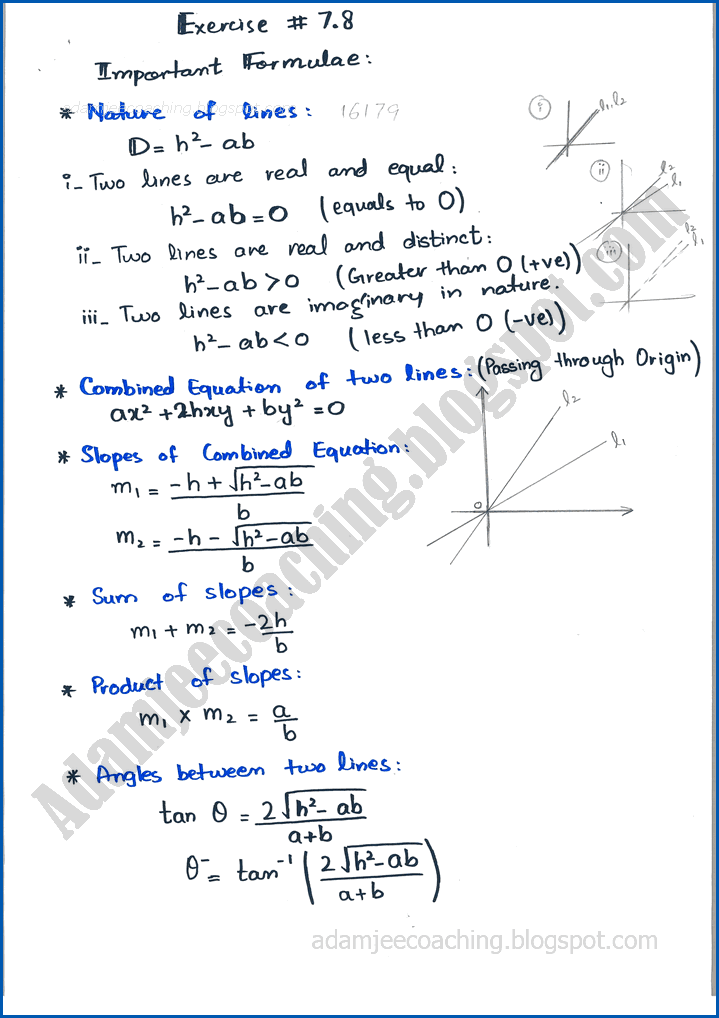 Exercise # 7.8
Important Formulae:
adamjeecoaching.blogspot.com
* Nature of lines: 16179
D = h² - ab
i- Two lines are real and equal:
h² - ab = 0 (equals to 0)
ii- Two lines are real and distinct:
h² - ab > 0 (Greater than 0 (+ve))
iii- Two lines are imaginary in nature.
h² - ab < 0 (less than 0 (-ve))
i
l₁, l₂
ii
l₂
l₁
iii
l₂
l₁
* Combined Equation of two lines: (Passing through Origin)
ax² + 2hxy + by² = 0
l₂
l₁
0
* Slopes of Combined Equation:
m₁ = (-h + √(h² - ab)) / b
m₂ = (-h - √(h² - ab)) / b
* Sum of slopes:
m₁ + m₂ = -2h / b
* Product of slopes:
m₁ × m₂ = a / b
* Angles between two lines:
tan θ = 2√(h² - ab) / (a+b)
θ = tan⁻¹ (2√(h² - ab) / (a+b))
Adamjeecoaching.blogspot.com
adamjeecoaching.blogspot.com